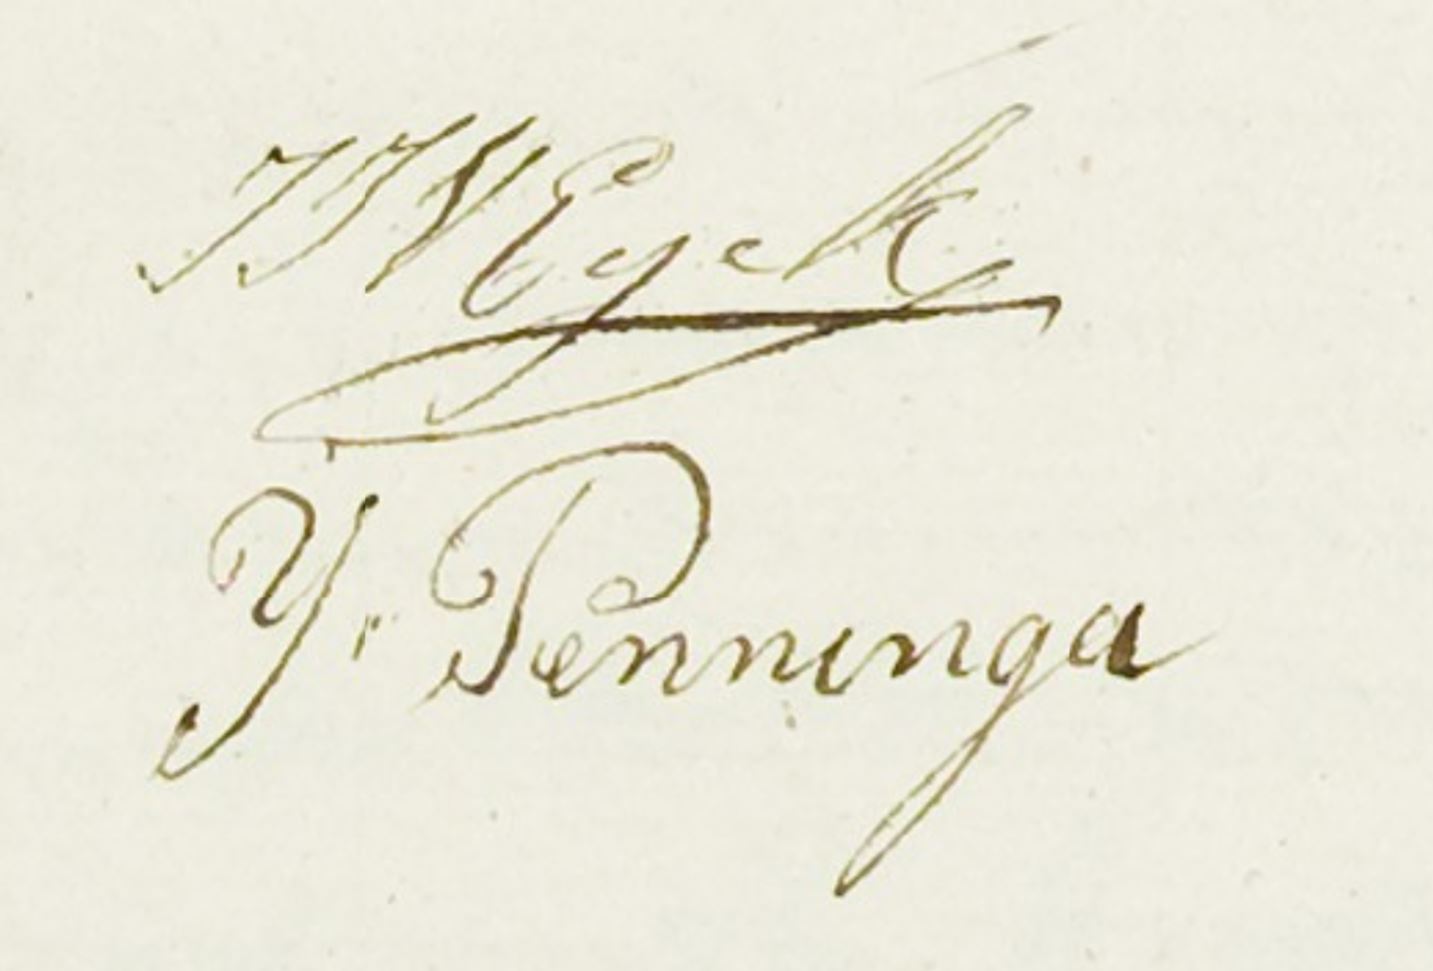 JJVEyck
Y. Penninga